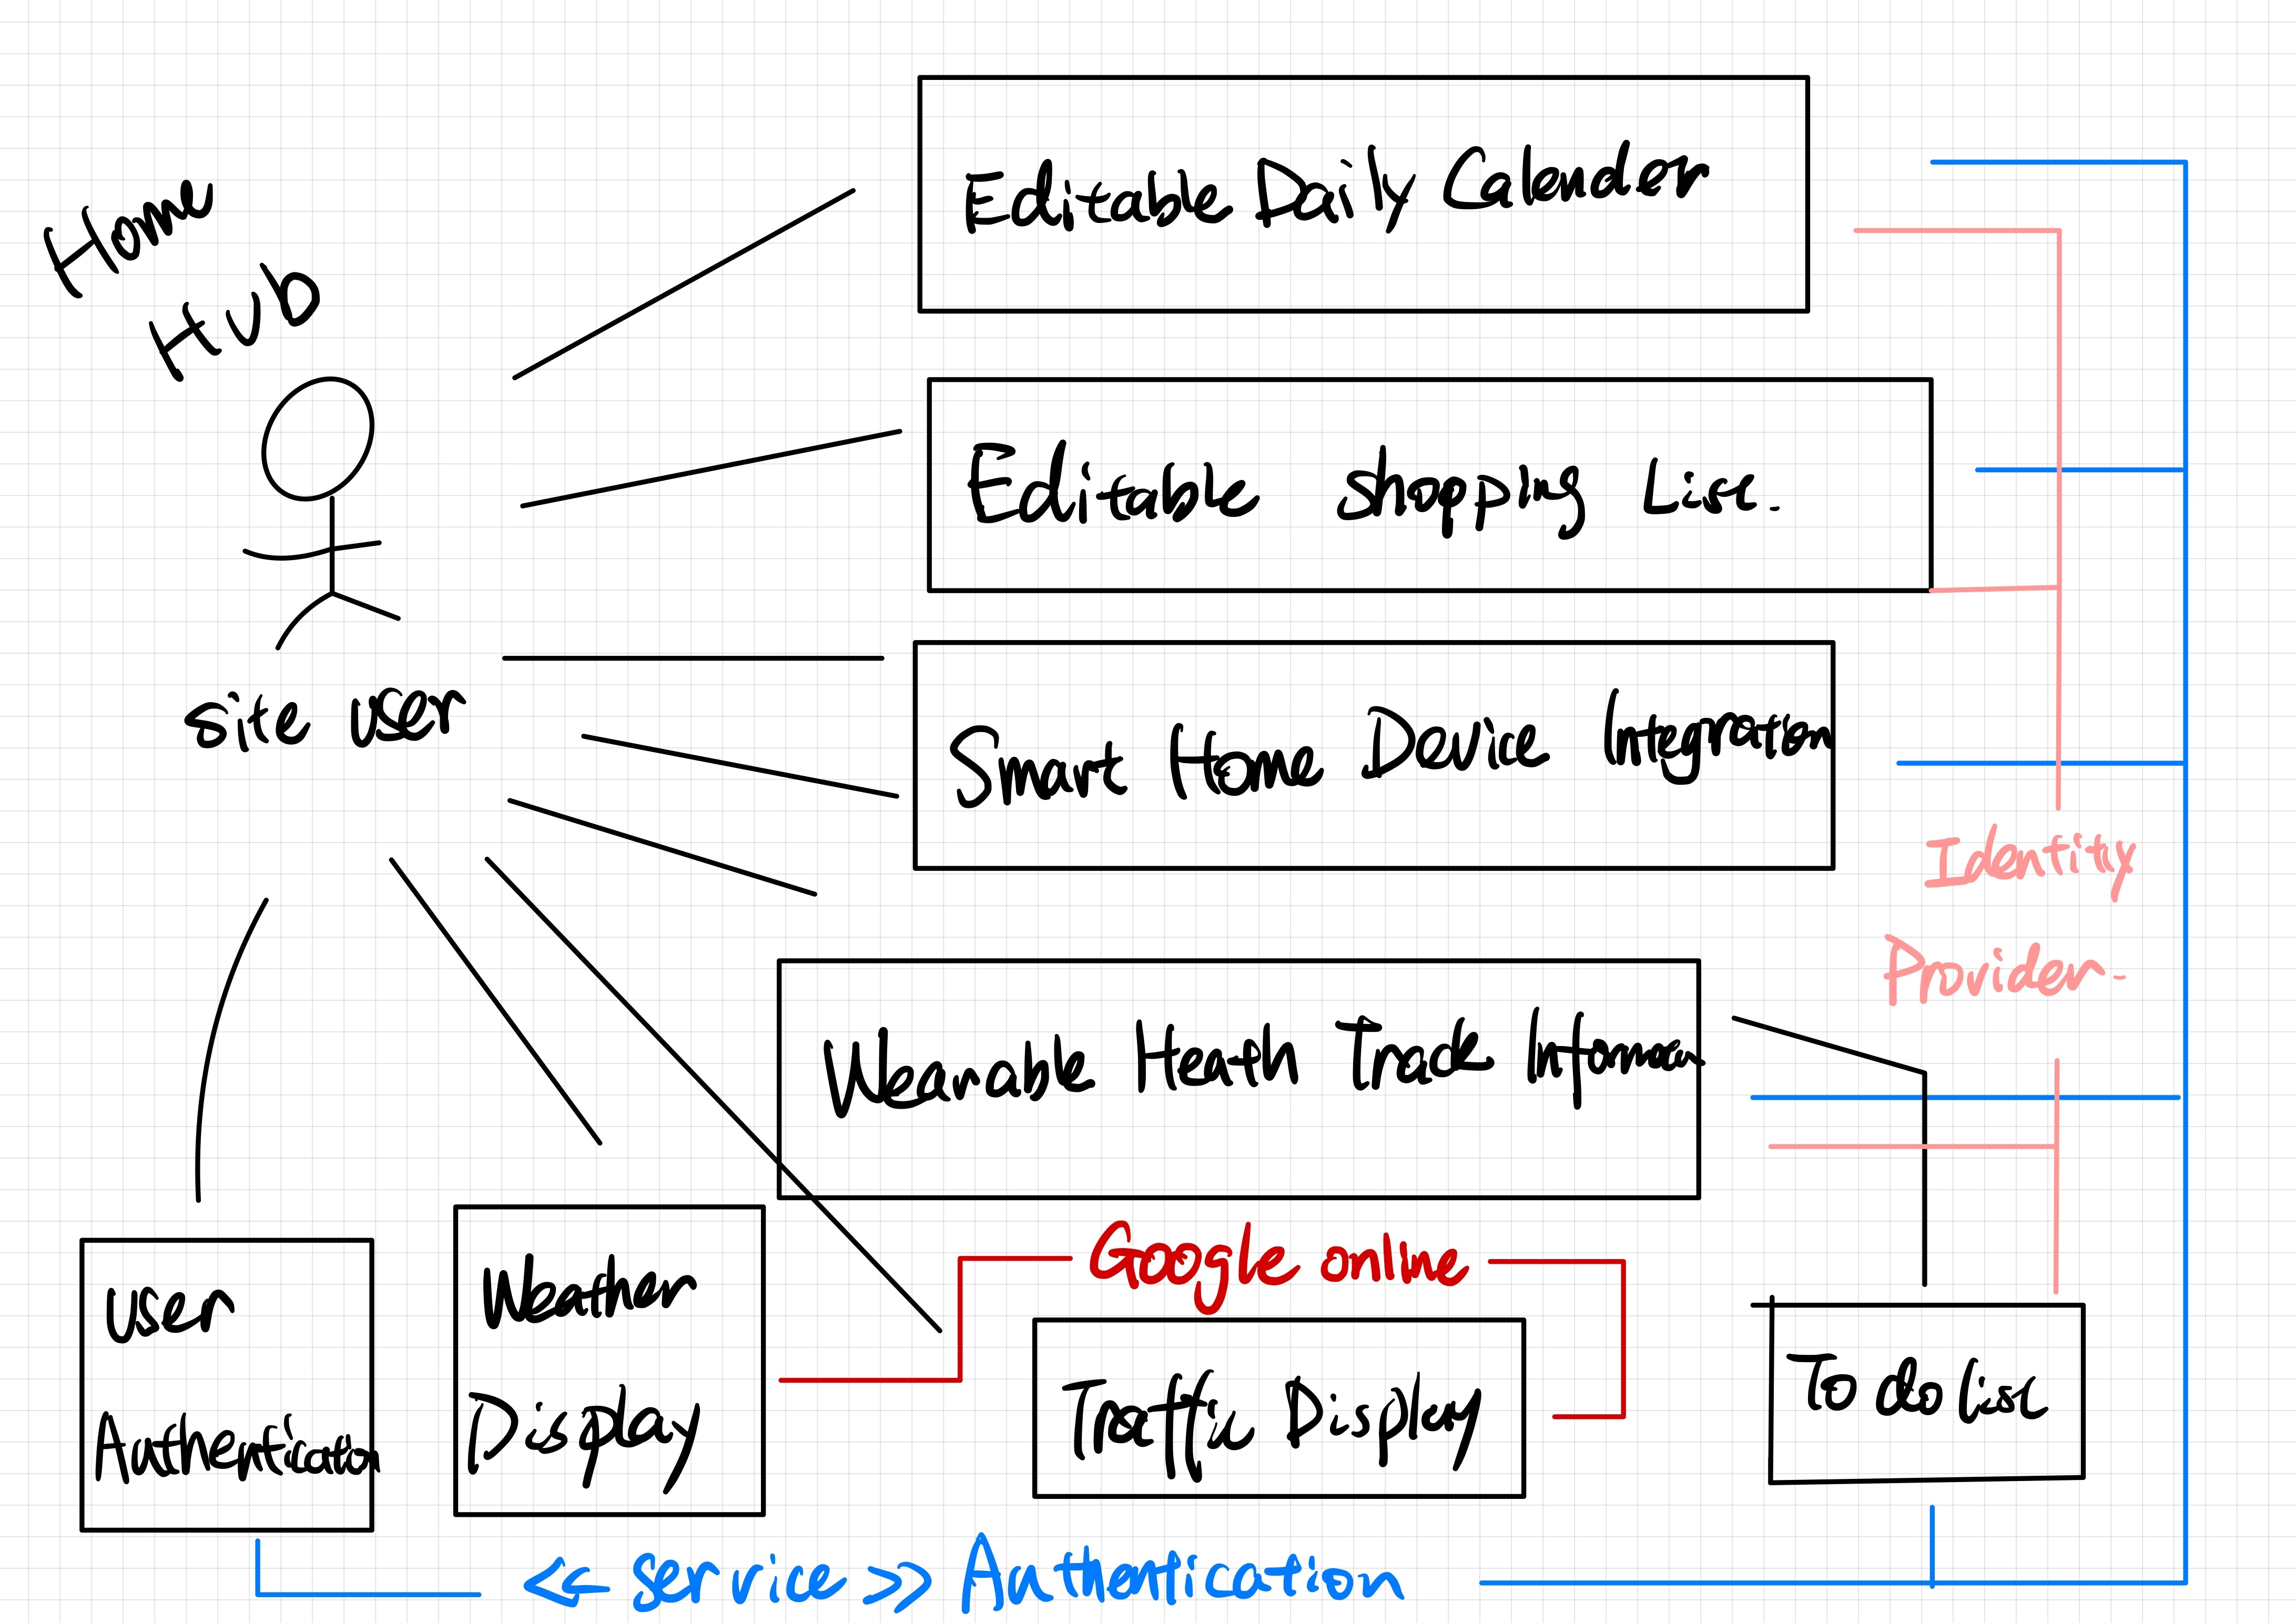 Home
Hub
site user
Editable Daily Calender
Editable Shopping List.
Smart Home Device Integration
Identity
Provider
Wearable Heath Track Information
User
Authentication
Weather
Display
Google online
Traffic Display
To do list
<< service >> Authentication